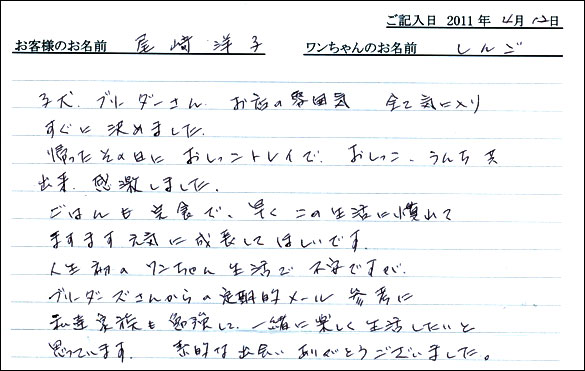 ご記入日 2011年 4月 12日
お客様のお名前 尾崎 洋子 ワンちゃんのお名前 しんご
子犬、ブリーダーさん お店の雰囲気 全て気に入り
すぐに決めました。
帰ったその日に おしっこトレイで、おしっこ、うんち共
出来、感激しました。
ごはんも完食で、早くこの生活に慣れて
ますます元気に成長してほしいです。
人生初のワンちゃん生活で 不安ですが、
ブリーダーズさんからの定期的メール 参考に
私達家族も勉強して、一緒に楽しく生活したいと
思っています。 素的な出会い ありがとうございました。